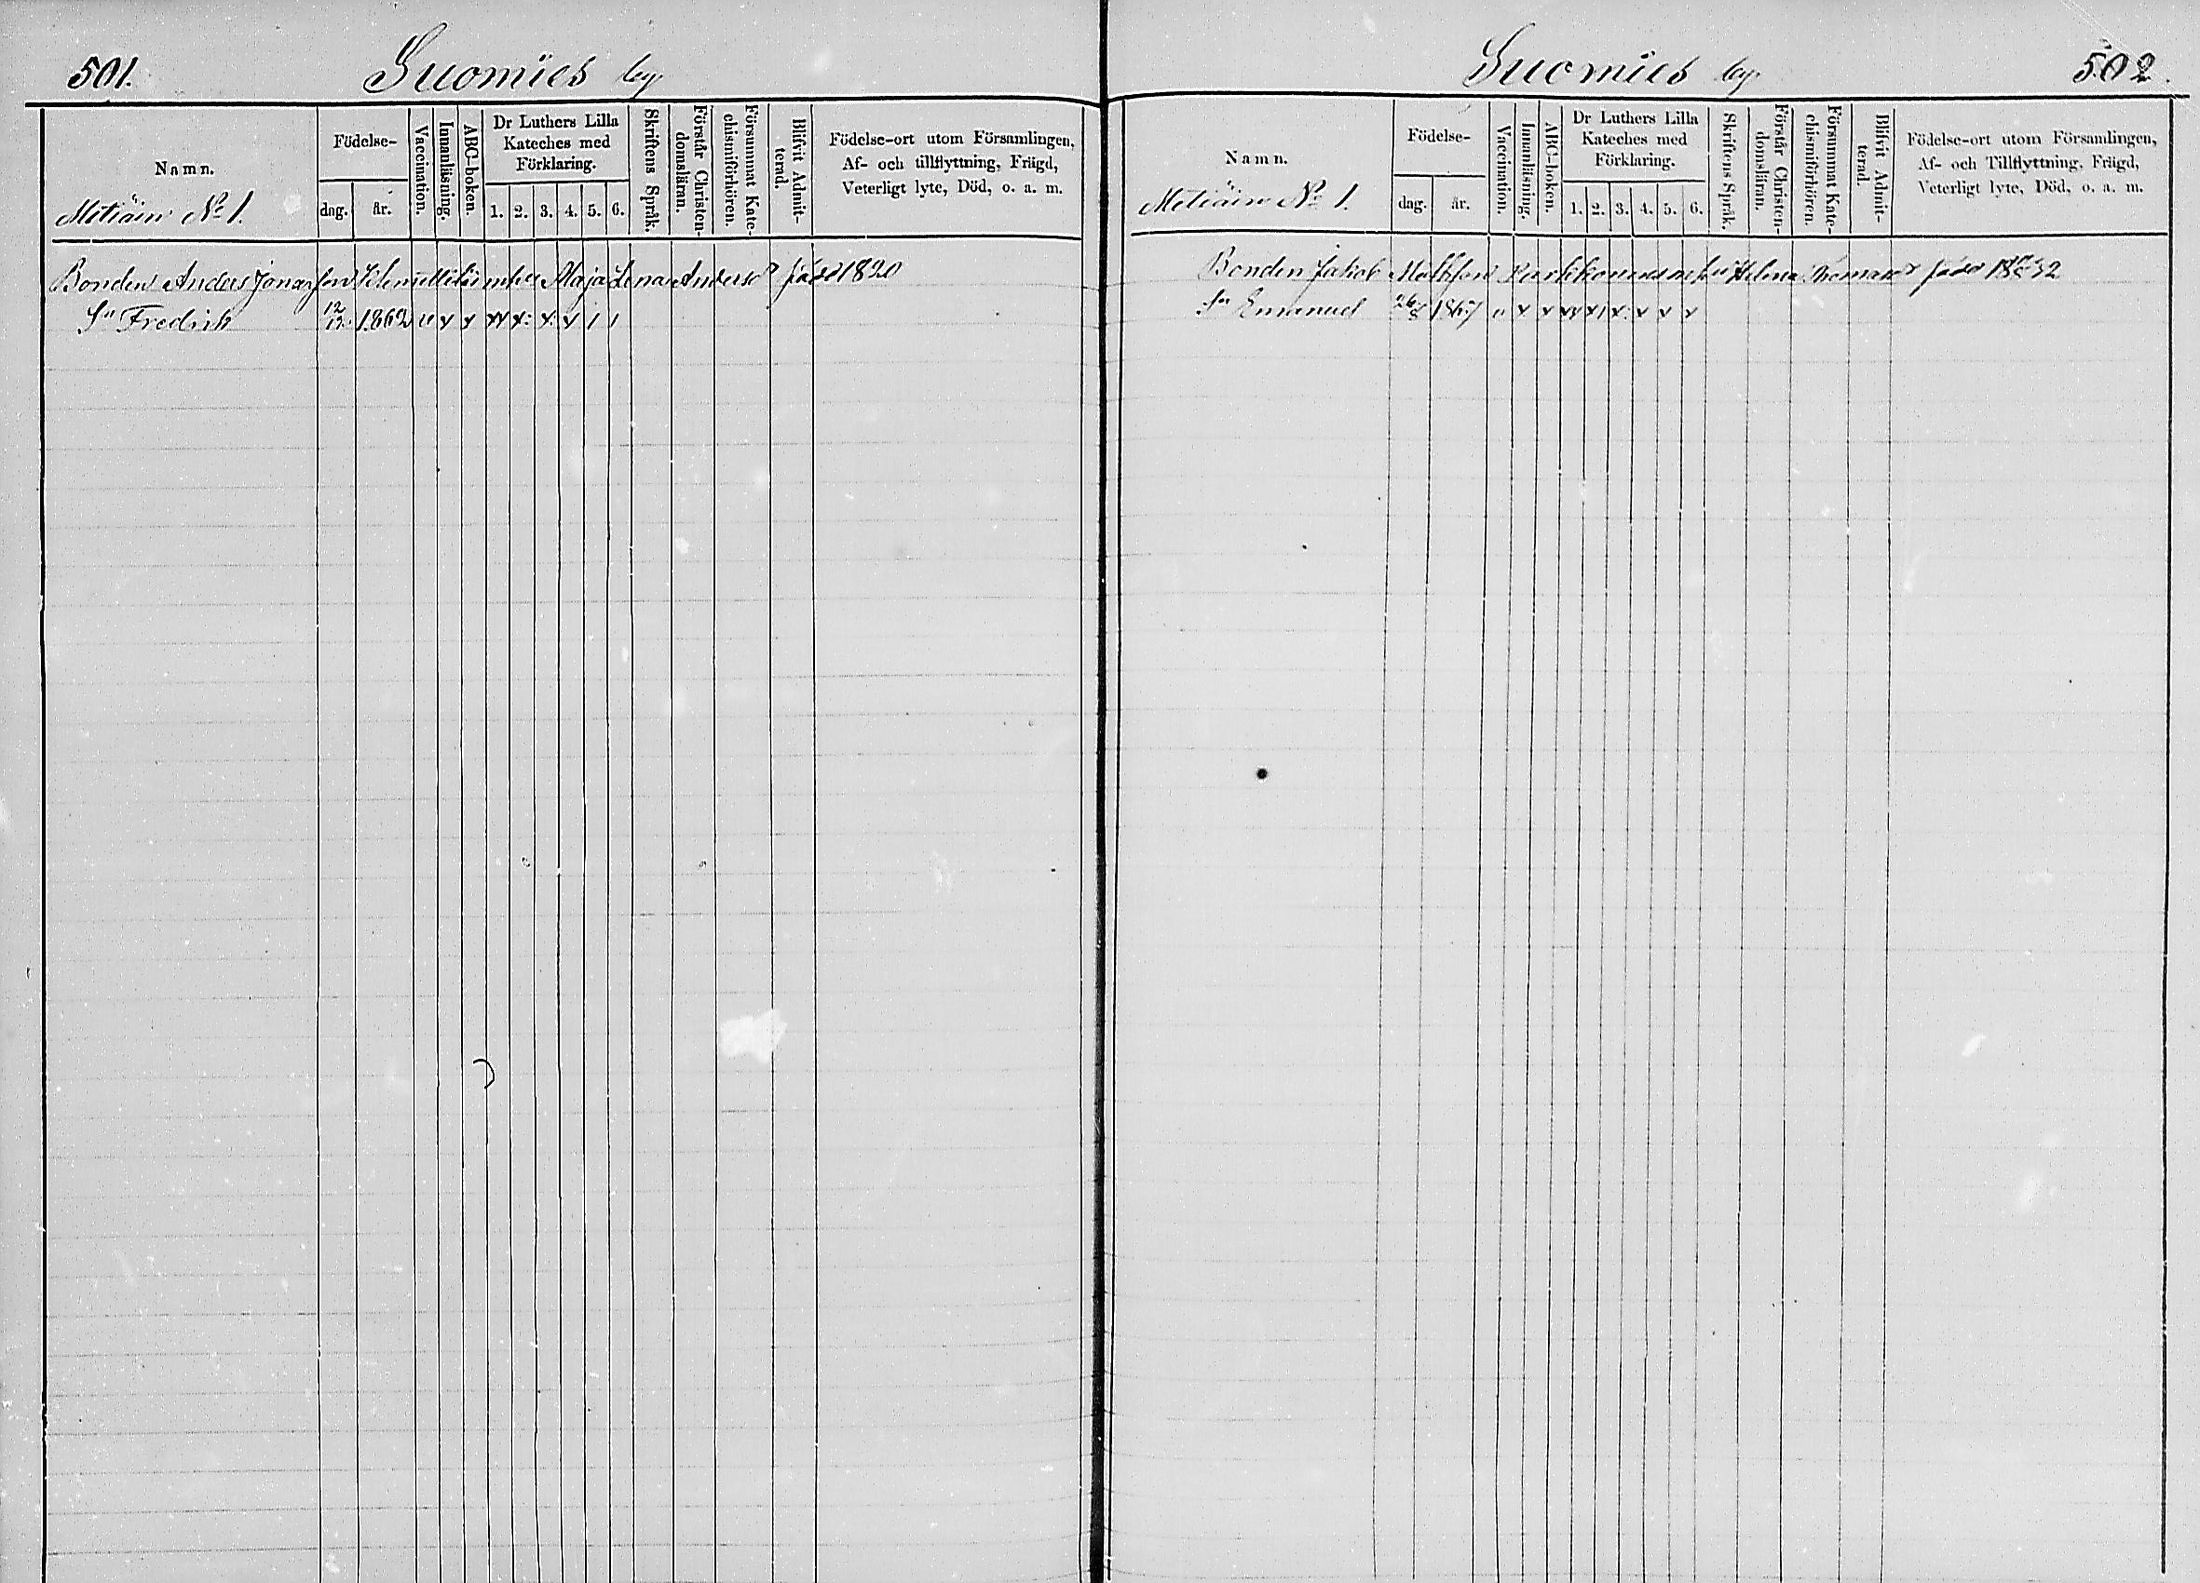 501.
Suomies by
Namn.
Födelse-
dag.
år.
Vaccination.
Innanläsning.
ABC-boken.
Dr Luthers Lilla
Kateches med
Förklaring.
1. 2. 3. 4. 5. 6.
Skriftens Språk.
Förstår Christen-
domsläran.
Försummat Kate-
chismiförhören.
Blifvit Admit-
terad.
Födelse-ort utom Församlingen,
Af- och tillflyttning, Frägd,
Veterligt lyte, Död, o. a. m.
Metiäin No 1.
Bonden Anders Maja Lena Anders född 1820
Sn Fredrik 12/12 1862 v x x xx x: x. x / /
Suomies by
502.
Namn.
Födelse-
dag.
år.
Vaccination.
Innanläsning.
ABC-boken.
Dr Luthers Lilla
Kateches med
Förklaring.
1. 2. 3. 4. 5. 6.
Skriftens Språk.
Förstår Christen-
domsläran.
Försummat Kate-
chismiförhören.
Blifvit Admit-
terad.
Födelse-ort utom Församlingen,
Af- och Tillflyttning, Frägd,
Veterligt lyte, Död, o. a. m.
Metiäin No 1.
Bonden Jakob Helena född
Sn Emanuel 1867